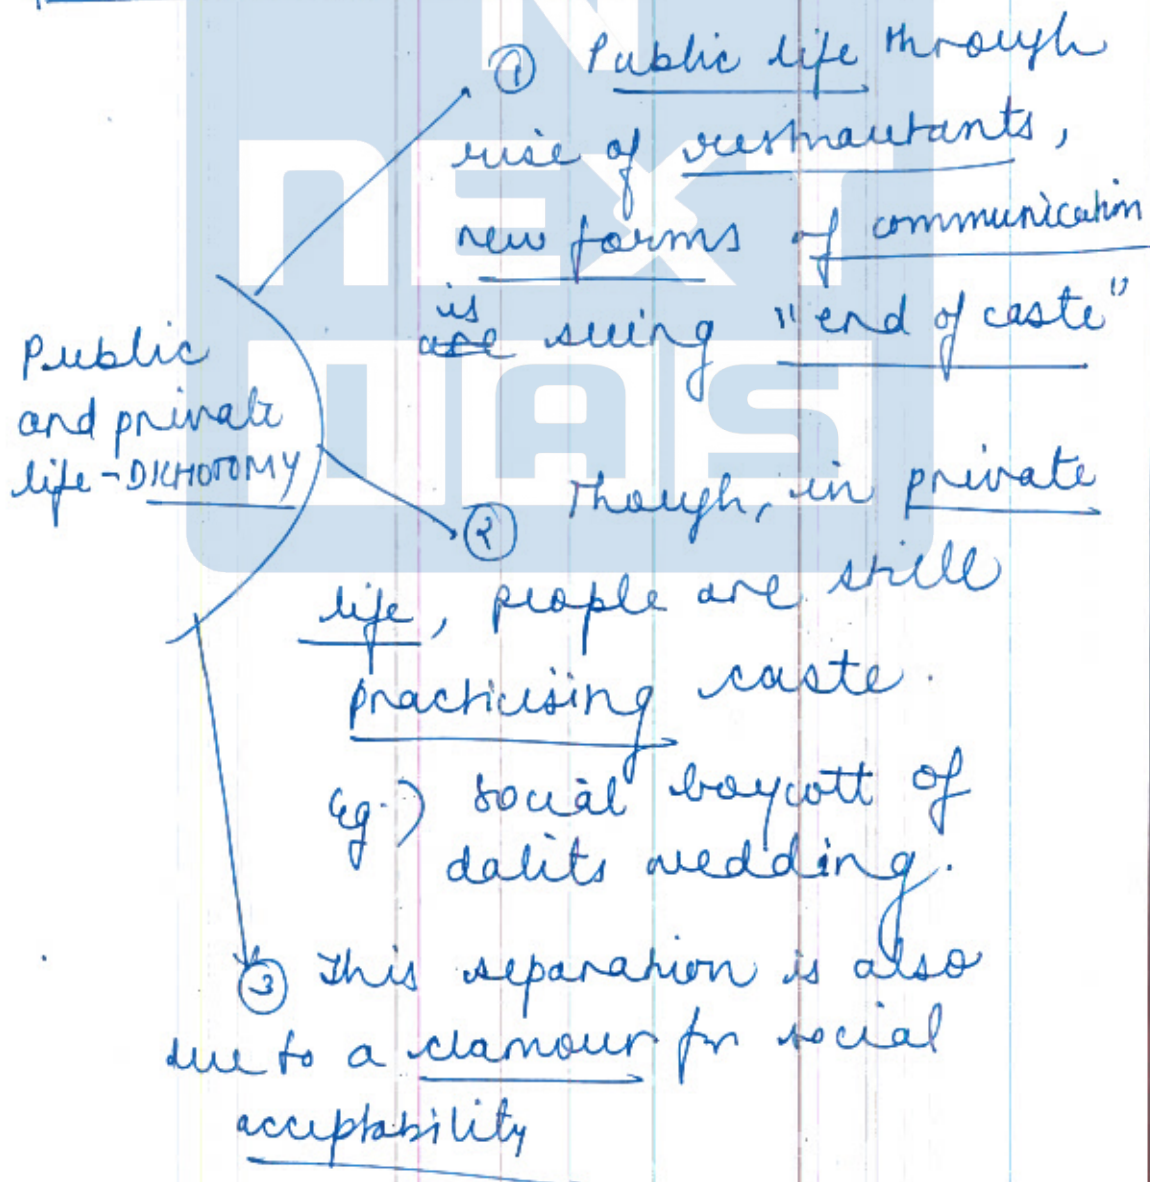 ① Public life through
rise of restnaurants,
new forms of communication
is
are seeing "end of caste"
Public
and private
life - DICHOTOMY
② Though, in private
life, people are still
practicising caste.
eg.) social boycott of
dalits wedding.
③ This separation is also
due to a clamour for social
acceptability
NEXT
IAS